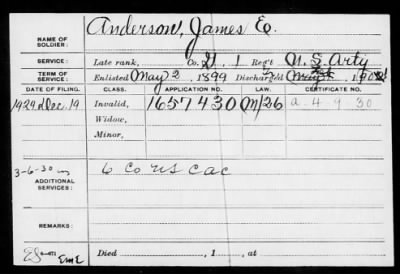 Anderson, James E.
NAME OF SOLDIER:
SERVICE: Late rank, Co. 1 Reg't U.S. Arty
TERM OF SERVICE: Enlisted May 2 1899 Discharged
DATE OF FILING. CLASS. APPLICATION NO. LAW. CERTIFICATE NO.
1929 Dec. 19 Invalid, 1657430 M/26 a 4 9 30
Widow,
Minor,
3-6-30
ADDITIONAL SERVICES: 6 Co US CAC
REMARKS:
Died , 1 , at